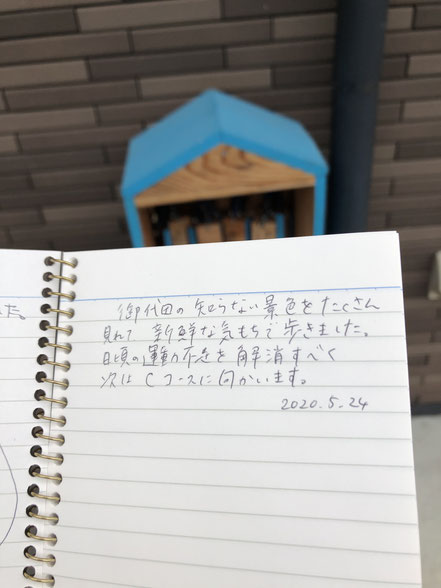 た。
御代田の知らない景色をたくさん
見れて新鮮な気もちで歩きました。
日頃の運動不足を解消すべく
次はCコースに向かいます。
2020.5.24